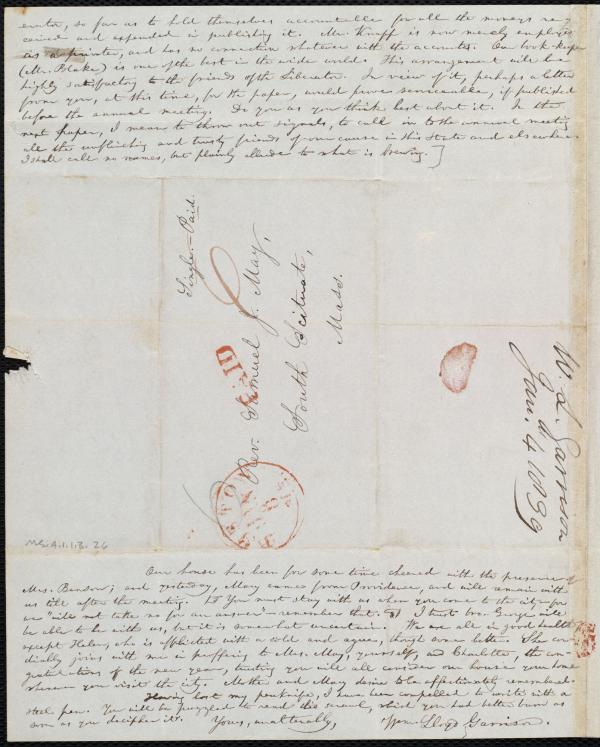 erator, so far as to hold themselves accountable for all the moneys re-
ceived and expended in publishing it. Mr. Knapp is now merely employed
as a printer, and has no connection whatever with the accounts. Our book-keeper
(Mr. Blake) is one of the best in the wide world. This arrangement will be
highly satisfactory to the friends of the Liberator. In view of it, perhaps a letter
from you, at this time, for the paper, would prove serviceable, if published
before the annual meeting. Do you as you think best about it. In the
next paper, I mean to throw out signals, to call in to the annual meeting
all the unflinching and trusty friends of our cause in this State and elsewhere.
I shall call no names, but plainly allude to what is brewing.]
Single. Paid.
PAID
Rev. Samuel J. May,
South Scituate,
Mass.
W. L. Garrison
Jan. 4 1839
MS.A.1.1.3.26
Our house has been for some time cheered with the presence of
Mrs. Benson; and yesterday, Mary came from Providence, and will remain with
us till after the meeting. You must stay with us when you come to the city—for
we "will not take no for an answer"—remember that. I trust bro. George will
be able to be with us, but it is somewhat uncertain. We are all in good health
except Helen, who is afflicted with a cold and ague, though some better. She cor-
dially joins with me in proffering to Mrs. May, yourself, and Charlotte, the con-
gratulations of the new year, trusting you will all consider our house your home
whenever you visit the city. Mother and Mary desire to be affectionately remembered.
Having lost my penknife, I have been compelled to write with a
steel pen. You will be puzzled to read this scrawl, which you had better burn as
soon as you decipher it. Yours, unalterably, Wm. Lloyd Garrison.